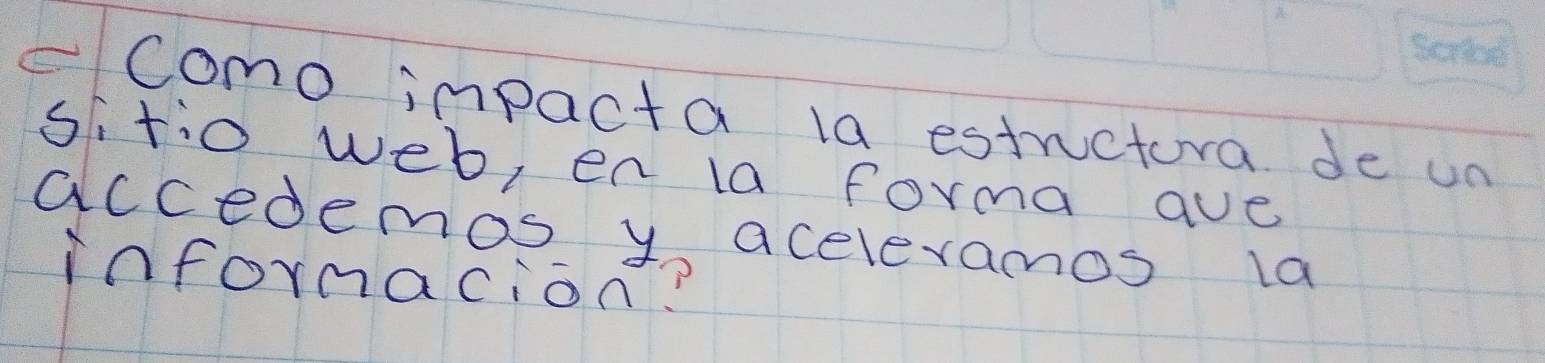 Scribe
¿Como impacta la estructura de un
sitio web, en la forma que
accedemos y aceleramos la
información?